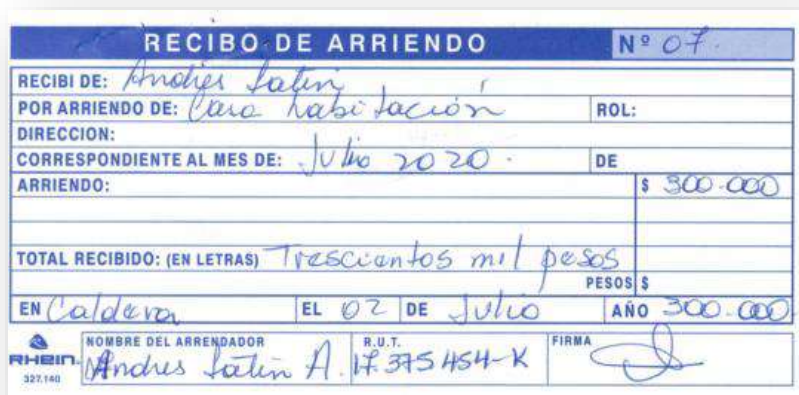 RECIBO DE ARRIENDO Nº 07.
RECIBI DE: Andrés Latin
POR ARRIENDO DE: Casa habitación ROL:
DIRECCION:
CORRESPONDIENTE AL MES DE: Julio 2020. DE
ARRIENDO: $ 300.000
TOTAL RECIBIDO: (EN LETRAS) Trescientos mil pesos
PESOS $
EN Caldera EL 02 DE Julio AÑO 300.000
RHEIN NOMBRE DEL ARRENDADOR R.U.T. FIRMA
327.140 Andres Latin A. 17.375454-K